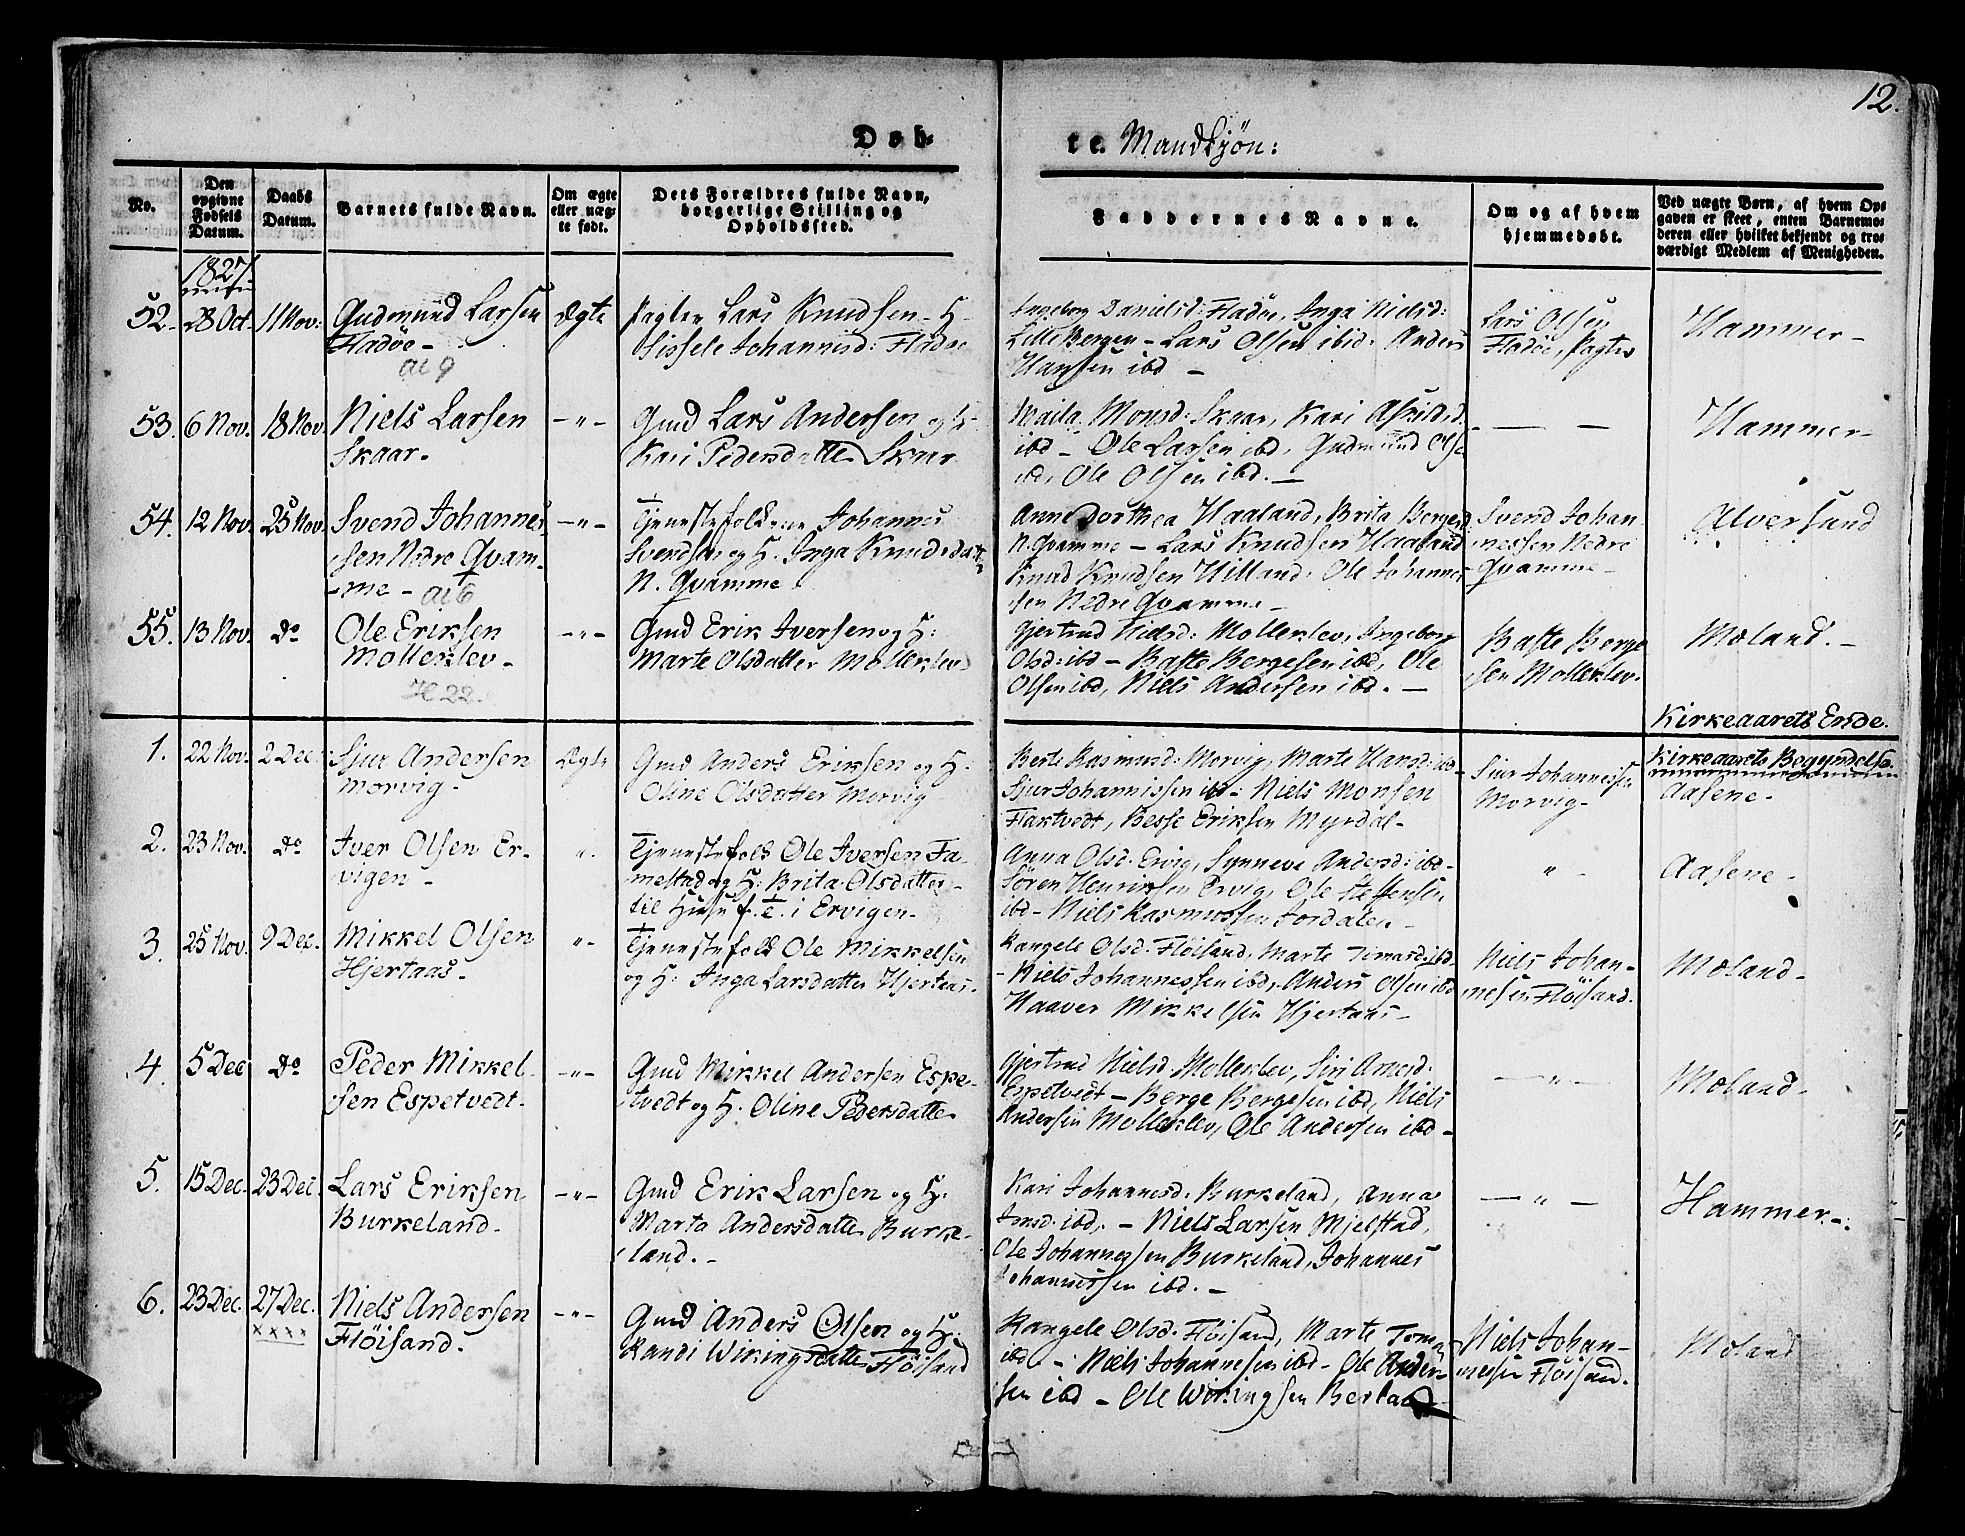 12.
Døb-
te. Mandkjøn:
No.
Den opgivne Fødsels Datum.
Daabs Datum.
Barnets fulde Navn.
Om ægte eller uægte født.
Dets Forældres fulde Navn, borgerlige Stilling og Opholdssted.
Faddernes Navne.
Om og af hvem hjemmedøbt.
Ved uægte Børn, af hvem Opgaven er skeet, enten Barnemoderen eller hvilket bekjendt og troværdigt Medlem af Menigheden.
1827
52. 28 Oct. 11 Nov: Gudmund Larsen Ægte Pagter Lars Knudsen - H
Fladøe - Sissele Johannisd: Fladøe
Ingeborg Danielsd: Fladøe, Inga Nielsd:
Lille Bergen - Lars Olsen ibid: Anders
Hansen ibd -
Lars Olsen
Fladøe, Pagter
Hammer -
53. 6 Nov. 18 Nov. Niels Larsen -"- Gmd Lars Andersen og H-
Skaar. Kari Pedersdatter Skaar
Monsd: Skaar, Kari
ibd - Ole Larsen ibd, Gudmund Ols
ibd, Ole Olsen ibd. -
- -
Hammer -
54. 12 Nov. 25 Nov. Svend Johannes -"- Tjenestefolkene Johannes
sen Nedre Qvam- Svendsen og H. Inga Knudsdatt
-me - N. Qvamme
Anne Dorthea Haaland, Brita Bergesd
N. Qvamme - Lars Knudsen Haaland
Knud Knudsen Hilland, Ole Johannes-
sen Nedre Qvamme -
Svend Johan-
nessen Nedre
Qvamme -
Alversund
55. 13 Nov. Do Ole Eriksen -"- Gmd Erik Iversen og H:
Mollerlev - Marte Olsdatter Mollerlev
H 22.
Gjertrud Nielsd: Mollerlev, Ingeborg
Olsd: ibd - Baste Bergesen ibd, Ole
Olsen ibd, Niels Andersen ibd. -
Baste Berge
sen Mollerlev.
Mæland. -
Kirkeaarets Ende.
1. 22 Nov. 2 Dec: Sjur Andersen Ægte Gmd Anders Eriksen og H.
Morvig - Oline Olsdatter Morvig
Berte Rasmusd: Morvig, Marte Hansd: ibd
Sjur Johannissen ibd - Niels Monsen
Flaktvedt, Besse Eriksen Myrdal -
Siur Johannissen
Morvig -
Kirkeaarets Begyndelse.
Aasene -
2. 23 Nov. Do Iver Olsen Er- " Tjenestefolk Ole Iversen Fa-
vigen - mestad og H: Brita Olsdatter -
til Huse f. t. i Ervigen -
Anna Olsd. Ervig, Synneve Andersd: ibd -
Søren Henriksen Ervig, Ole Steffensen
ibd - Niels Rasmussen Jordalen -
" -
Aasene -
3. 25 Nov. 9 Dec. Mikkel Olsen "- Tjenestefolk Ole Mikkelsen
Hjertaas - og H: Inga Larsdatter Hjertaas -
Rangele Olsd: Fløisand, Marte Tomasd: ibd
- Niels Johannessen ibd, Anders Olsen ibd
Haaver Mikkelsen Hjertaas -
Niels Johan-
nessen Fløisand.
Mæland -
4. 5 Dec Do Peder Mikkel- -"- Gmd Mikkel Andersen Espe-
sen Espetvedt - tvedt og H. Oline Pedersdatter
Gjertrud Nielsd. Mollerlev, Siri Arnesd.
Espetvedt - Berge Bergesen ibd, Niels
Andersen Mollerlev, Ole Andersen ibd -
- " -
Mæland -
5. 15 Dec. 23 Dec. Lars Eriksen -"- Gmd Erik Larsen og H.
Burkeland - Marta Andersdatter Burke-
land. -
Kari Johannesd. Burkeland, Anna
ibd, - Niels Larsen Mjelstad,
Ole Johannessen Burkeland, Johannes
Johannessen ibd. -
- " -
Hammer. -
6. 23 Dec. 27 Dec. Niels Andersen -"- Gmd Anders Olsen og H:
xxxx Fløisand. Randi Wikingsdatter Fløisand
Rangele Olsd. Fløisand, Marte Tomasd
ibd. - Niels Johannesen ibd - Ole Ander-
sen ibd - Ole Wikingsen Berland
Niels Johan-
nessen Fløisand.
Mæland